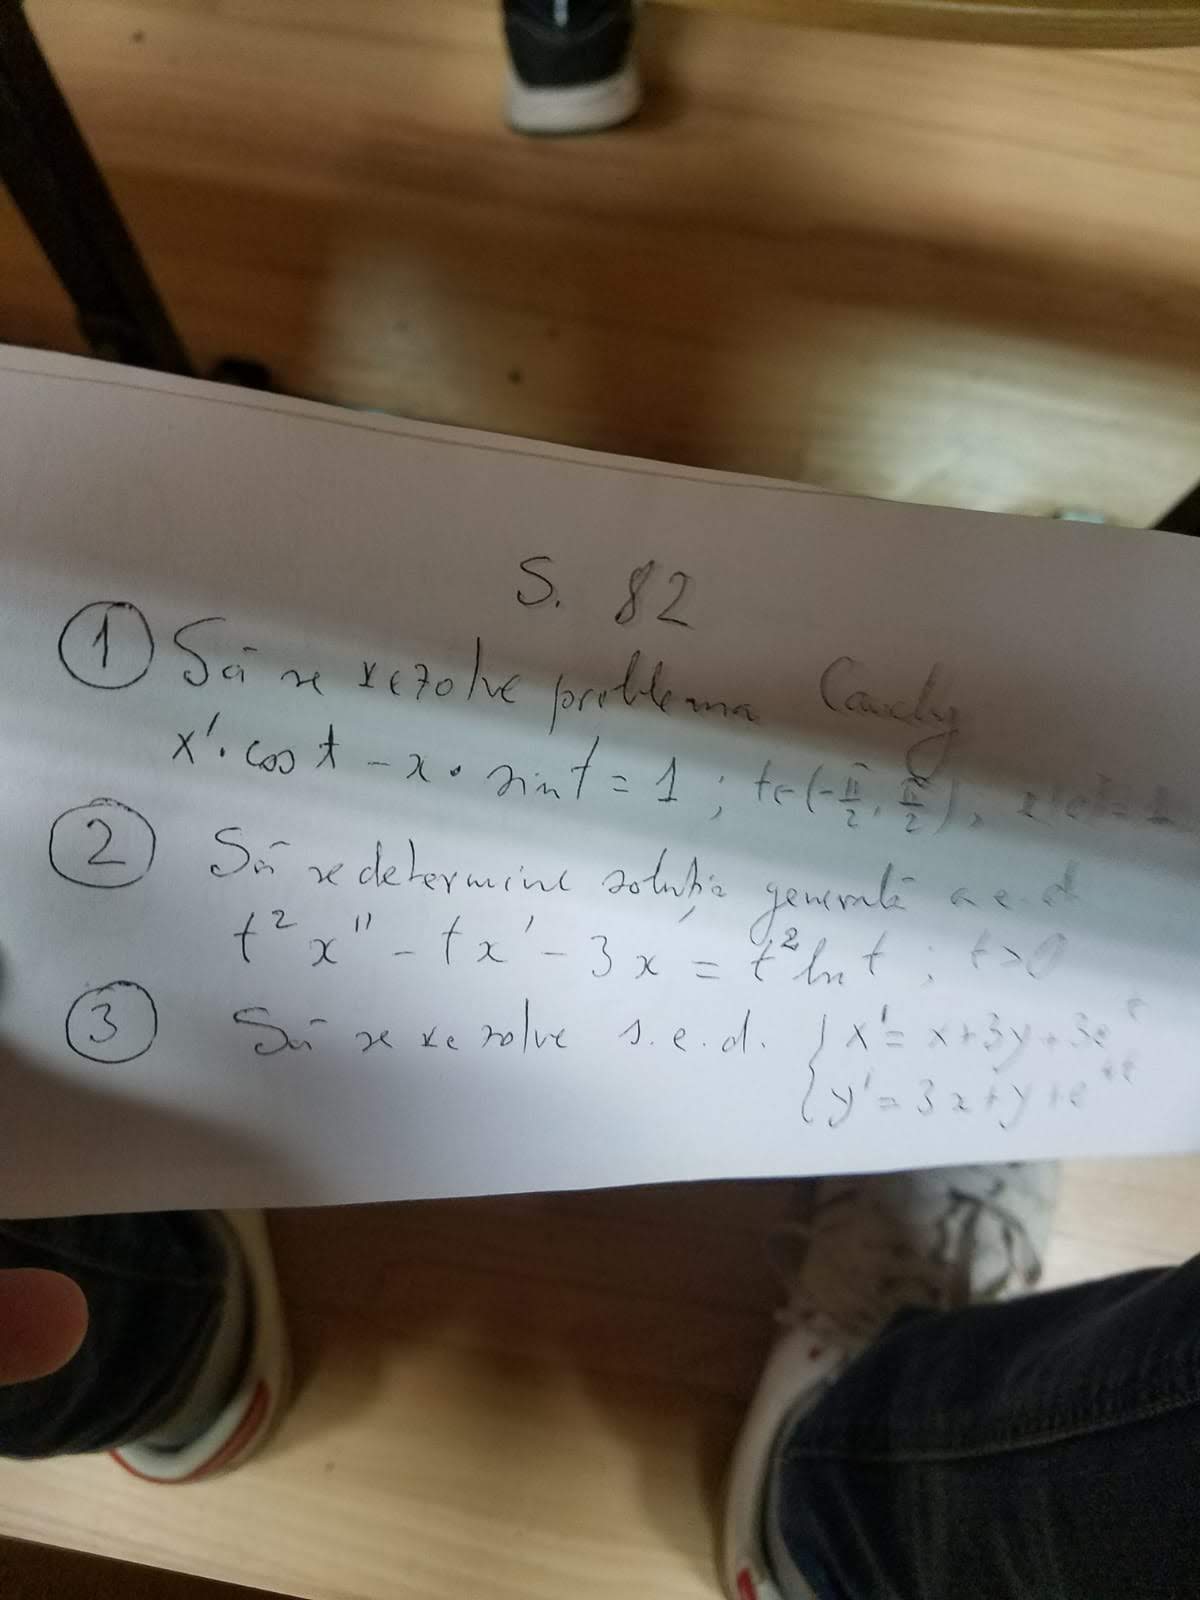 S. 82
① Să se rezolve problema Cauchy
x'·cos t - x·sin t = 1 ; t∈(-π/2, π/2) ; x(0) = 1
② Să se determine soluția generală a e.d
t² x'' - tx' - 3x = t² ln t ; t>0
③ Să se rezolve s.e.d. { x' = x+3y+3e^t
y' = 3x+y+e